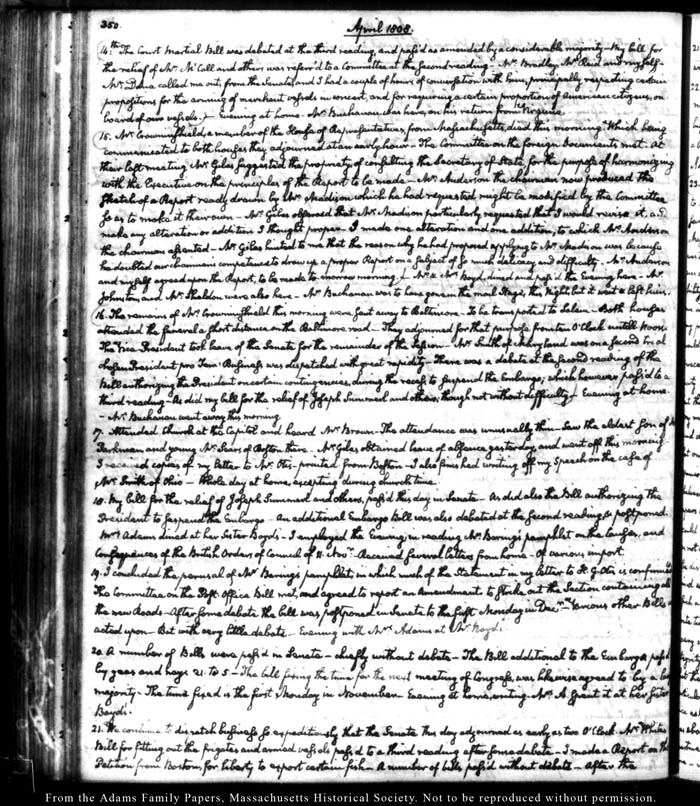 350.
April 1808.
14.th The Court Martial Bill was debated at the third reading, and pass'd as amended by a considerable majority — My bill for
the relief of Mr. McCall and others was referr'd to a Committee at the second reading — Mr. Bradley, Mr. Reed and myself.
Mr. Dana called me out, from the Senate, and I had a couple of hours of conversation with him, principally respecting certain
propositions for the arming of merchant vessels in concert, and for requiring a certain proportion of american citizens, on
board of our vessels. Evening at home. Mr. Buchanan was here, on his return from Virginia.
15. Mr. Crowninshield, a member of the House of Representatives, from Massachusetts, died this morning. Which being
communicated to both houses they adjourned at an early hour — The Committee on the foreign Documents met. At
their last meeting Mr. Giles suggested the propriety of consulting the Secretary of State for the purpose of harmonizing
with the Executive on the principles of the Report to be made — Mr. Anderson the chairman now produced the
sketch of a Report ready drawn by Mr. Madison which he had requested might be modified by the Committee
so as to make it their own — Mr. Giles observed that Mr. Madison particularly requested that I would revise it, and
make any alteration or additions I thought proper. I made one alteration and one addition, to which Mr. Anderson
the chairman assented — Mr. Giles hinted to me that the reason why he had proposed applying to Mr. Madison was because
he doubted our chairman's competence to draw up a proper Report on a subject of so much delicacy and difficulty. Mr. Anderson
and myself agreed upon the Report, to be made to-morrow morning. Mr. & Mrs. Boyd, dined and pass'd the Evening here — Mr.
Johnson and Mr. Sheldon were also here — Mr. Buchanan was to have gone in the mail stage, this Night, but it went & left him.
16. The remains of Mr. Crowninshield this morning were sent away to Baltimore. To be transported to Salem. Both houses
attended the funeral a short distance on the Baltimore road — They adjourned for that purpose from ten O'Clock untill Noon.
The Vice-President took leave of the Senate for the remainder of the Session — Mr. Smith of Maryland was on a second trial
chosen President pro Tem: Business was dispatched with great rapidity — There was a debate at the second reading of the
Bill authorizing the President on certain contingencies, during the recess to suspend the Embargo; which however pass'd to a
third reading. As did my bill for the relief of Joseph Summerl and others; though not without difficulty. Evening at home.
— Mr. Buchanan went away this morning.
17. Attended Church at the Capitol and heard Mr. Brown. The attendance was unusually thin. Saw the eldest son of
Parkman and young Mr. Sears of Boston there. Mr. Giles obtained leave of absence yesterday, and went off this morning.
I received copies of my letter to Mr. Otis — printed from Boston — I also finished writing off my Speech on the case of
Mr. Smith of Ohio — Whole day at home, excepting during church time.
18. My bill for the relief of Joseph Summerl and others, pass'd this day in Senate — As did also the Bill authorizing the
President to suspend the Embargo — An additional Embargo Bill was also debated at the second reading & postponed.
Mrs. Adams dined at her Sister Boyd's — I employed the Evening in reading Mr. Baring's pamphlet on the Causes, and
Consequences of the British Orders of Council of 11. Novr. Received several letters from home — of various import.
19. I concluded the perusal of Mr. Baring's pamphlet; in which much of the Statement in my letter to H. G. Otis is confirmed
The Committee on the Post Office Bill met, and agreed to report an Amendment to strike out the Section containing all
the new Roads — After some debate the bill was postponed in Senate to the first Monday in Decr. Various other Bills
acted upon — But with very little debate. Evening with Mrs. Adams at Mr. Boyd's.
20. A number of Bills were pass'd in Senate — chiefly without debate — The Bill additional to the Embargo pass'd
by yeas and nays 21. to 5 — The bill fixing the time for the next meeting of Congress, was likewise agreed to by a large
majority. The time fixed is the first Monday in November. Evening at home, writing. Mrs. A. spent it at her Sister
Boyd's.
21. We continue to dispatch business so expeditiously that the Senate this day adjourned as early as two O'Clock. Mr. White's
Bill for fitting out the frigates and armed vessels pass'd to a third reading after some debate — I made a Report on the
Petition from Boston, for liberty to export certain fish — A number of bills pass'd without debate — After the
From the Adams Family Papers, Massachusetts Historical Society. Not to be reproduced without permission.